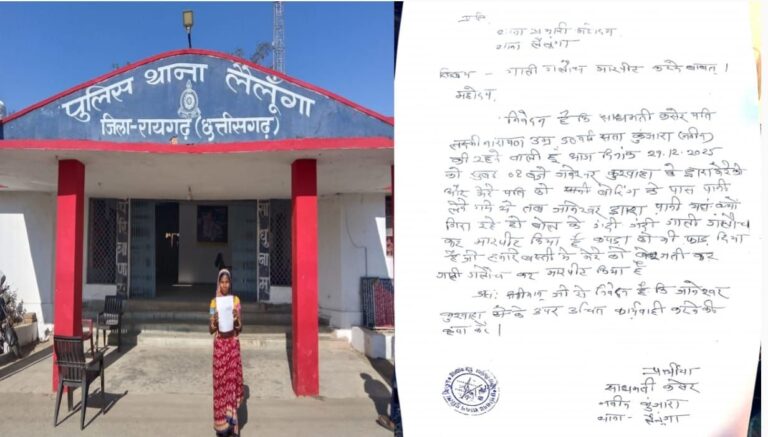 पुलिस थाना लैलूँगा
जिला-रायगढ़ (छत्तीसगढ़)
प्रति,
थाना प्रभारी महोदय
थाना लैलूंगा
विषय - गाली गलौच मारपीट करने बाबत्।
महोदय,
निवेदन है कि साधमती कसेर पति
लक्ष्मीनारायण उम्र 50 वर्ष पता कुंजारा (नवीन)
की रहने वाली हूं आज दिनांक 29.12.2025
को सुबह 08 बजे जानेश्वर कुशवाहा के द्वारा मेरे
और मेरे पति को बोरिंग के पास पानी
लेने गये थे तब जानेश्वर द्वारा पानी यहां क्यों
गिरा रहे हो बोल के गंदी गंदी गाली गलौच
कर मारपीट किया है कपड़ा को भी फाड़ दिया
है जो हमारे बस्ती में मेरे को बेइज्जती कर
गाली गलौच कर मारपीट किया है
अतः श्रीमान् जी से निवेदन है कि जानेश्वर
कुशवाहा के ऊपर उचित कार्यवाही करने की
कृपा करें।
प्रार्थीया
साधमती कसेर
नवीन कुंजारा
थाना - लैलूंगा